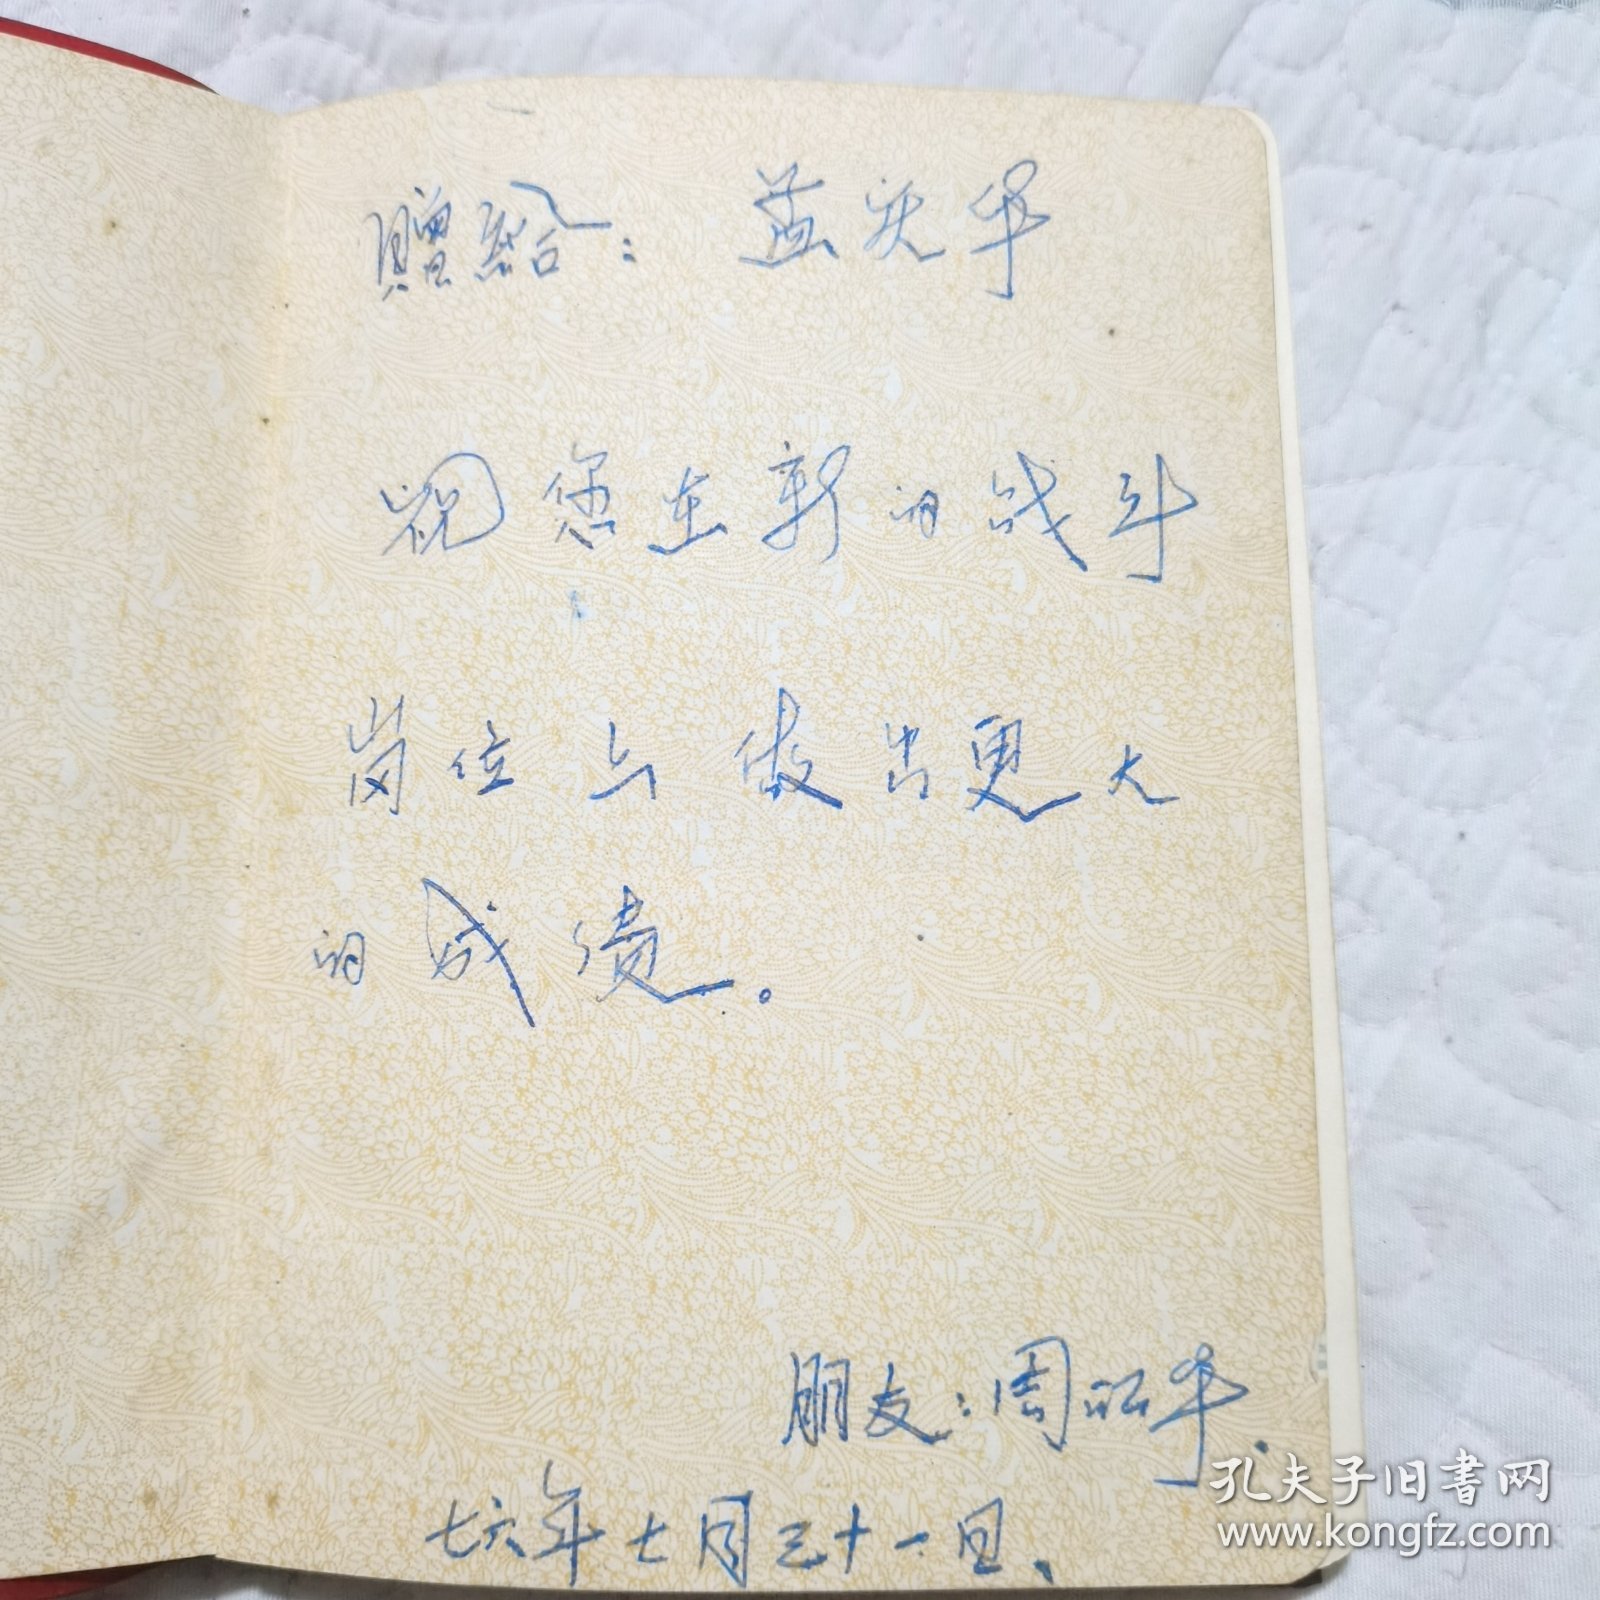 赠给： 孟庆华
祝您在新的战斗
岗位上做出更大
的成绩。
朋友：周
七六年七月三十一日、
孔夫子旧书网
www.kongfz.com